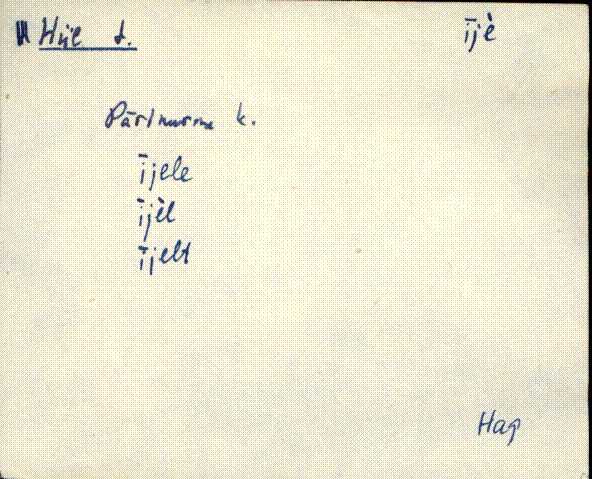 Hiie t. ījè
Pärinurme k.
ījele
ījèl
ījelt
Hag